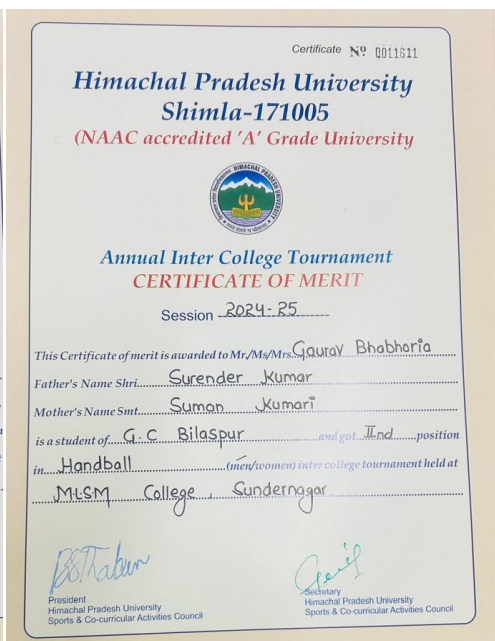 Certificate Nº 0011611
Himachal Pradesh University
Shimla-171005
(NAAC accredited 'A' Grade University
HIMACHAL PRADESH UNIVERSITY
Annual Inter College Tournament
CERTIFICATE OF MERIT
Session 2024-25
This Certificate of merit is awarded to Mr./Ms/Mrs. Gaurav Bhabhoria
Father's Name Shri. Surender Kumar
Mother's Name Smt. Suman Kumari
is a student of G.C Bilaspur and got IInd position
in Handball (men/women) inter college tournament held at
M.L.S.M College, Sundernagar.
President
Himachal Pradesh University
Sports & Co-curricular Activities Council
Secretary
Himachal Pradesh University
Sports & Co-curricular Activities Council